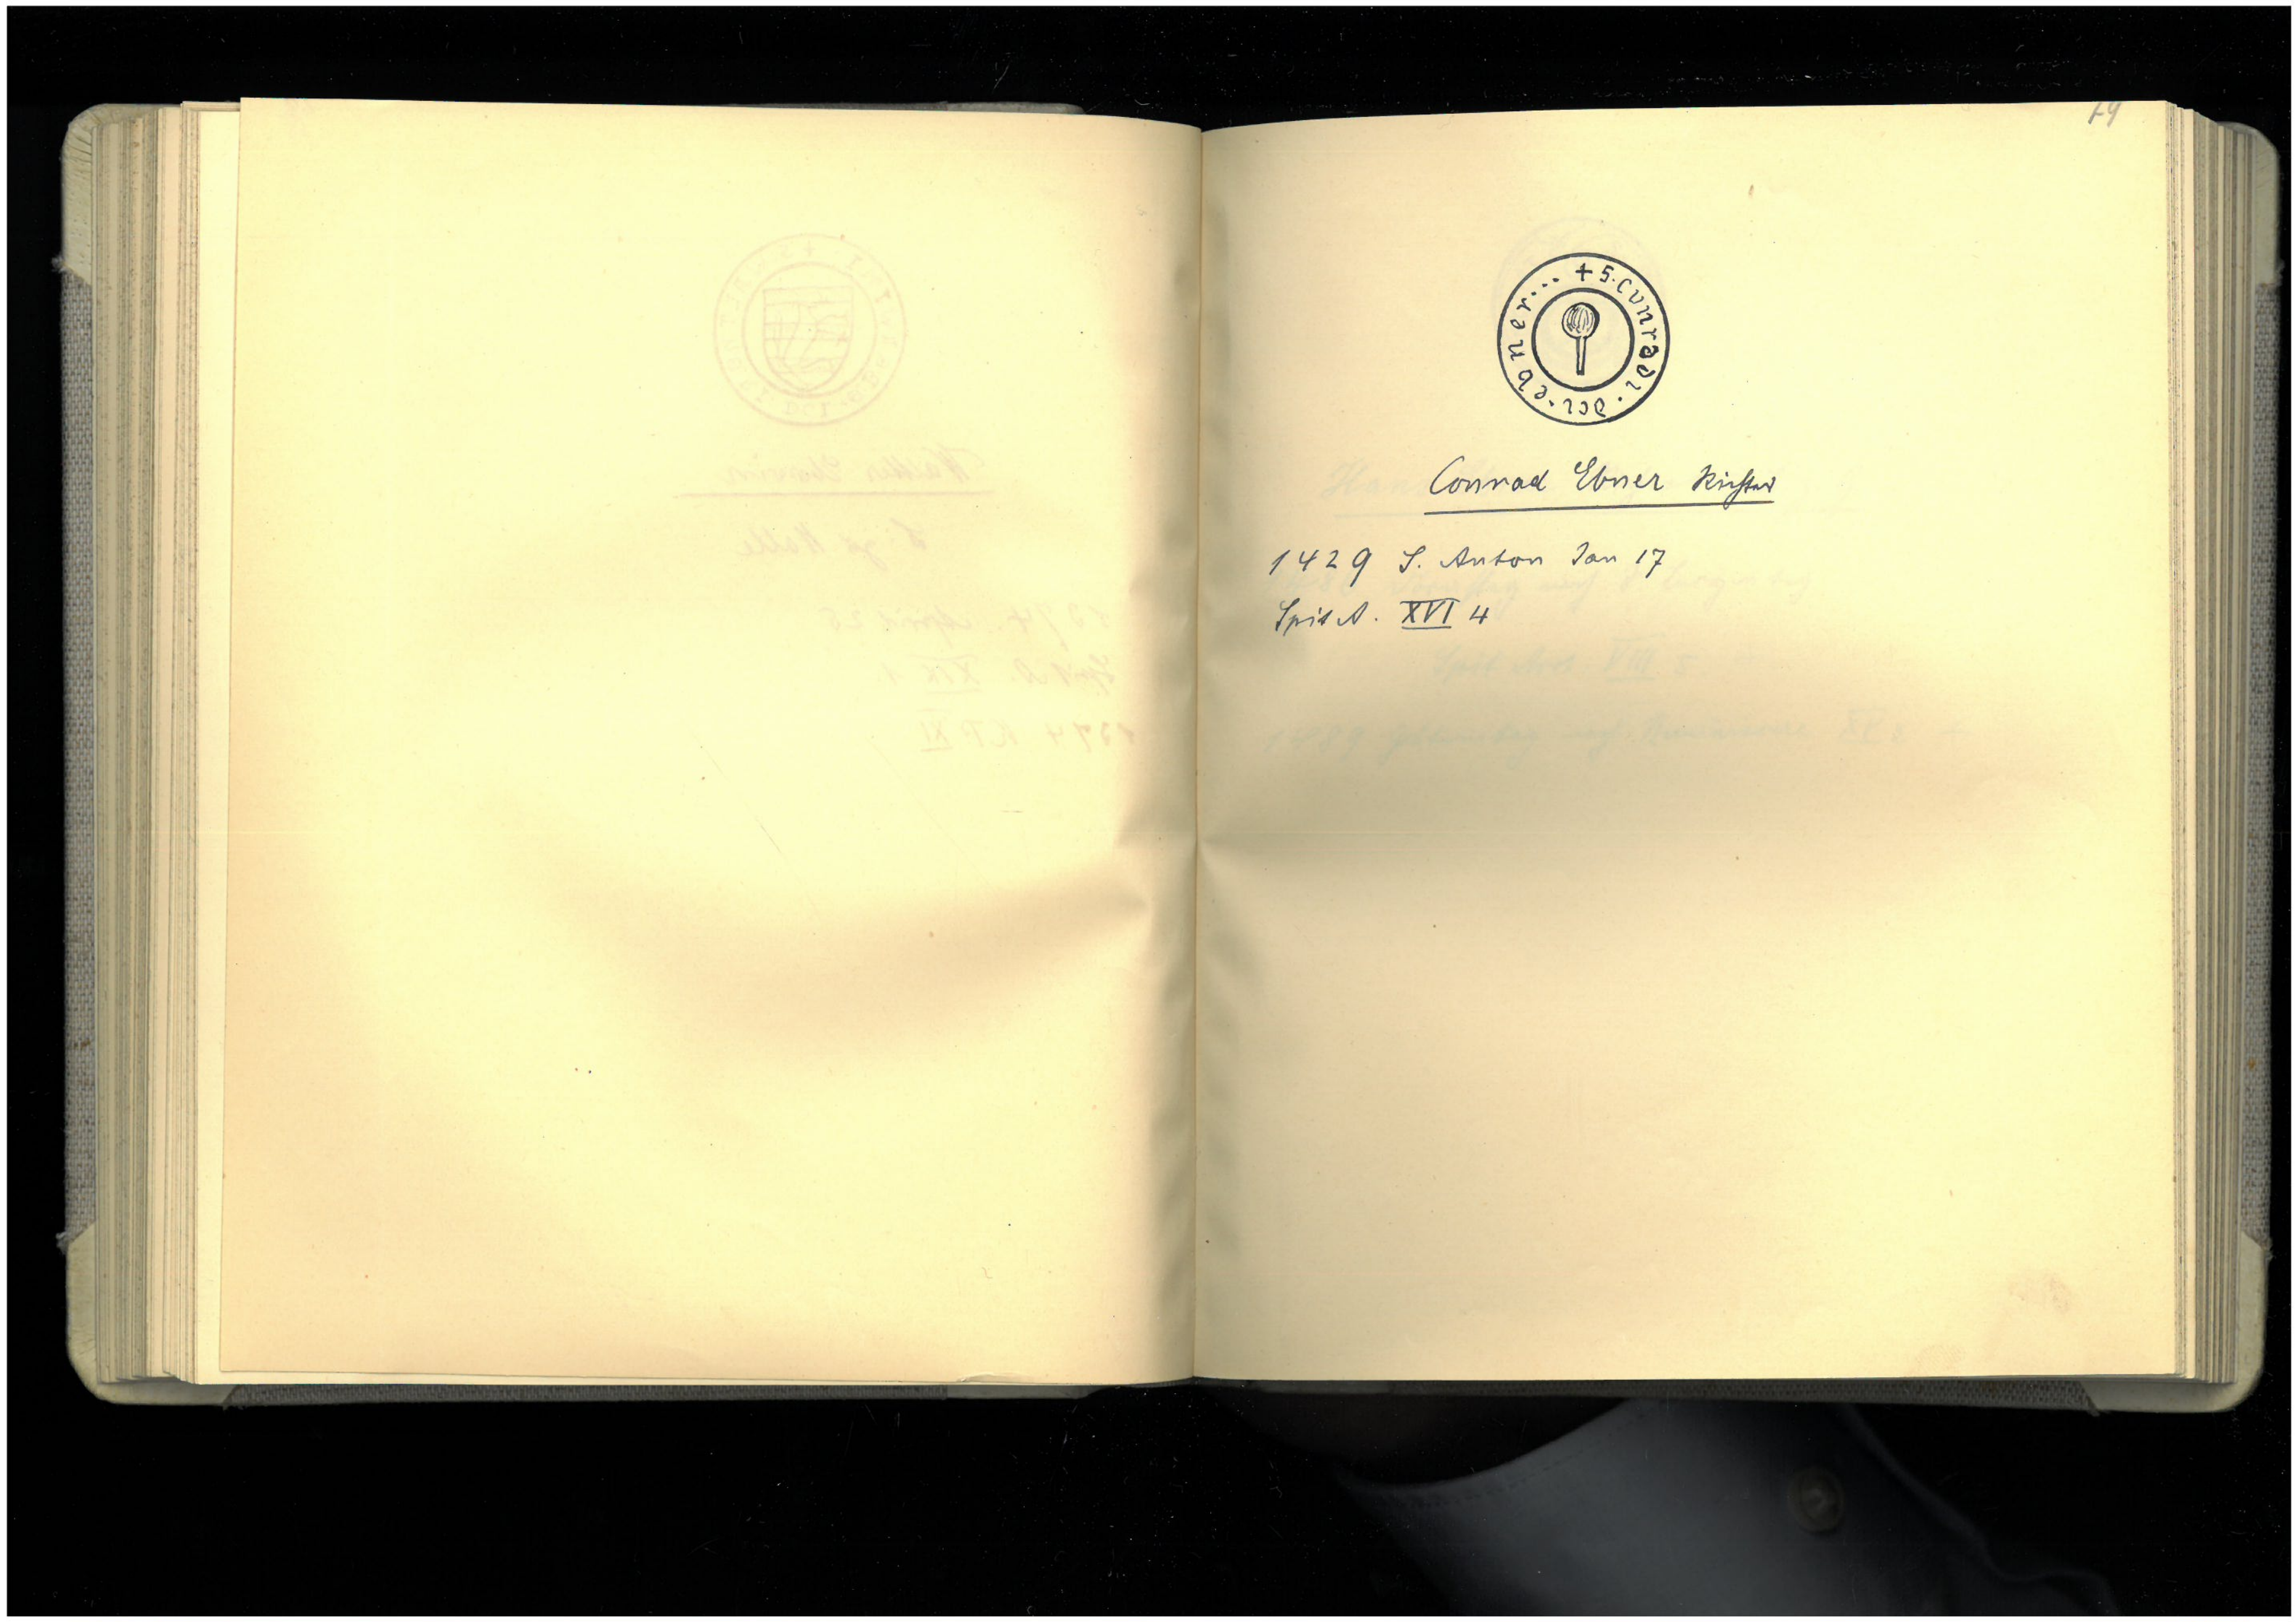 79
+ S. cvnradi . dci . ebner ...
Conrad Ebner Richter
1429 S. Anton Jan 17
Spit A. XVI 4